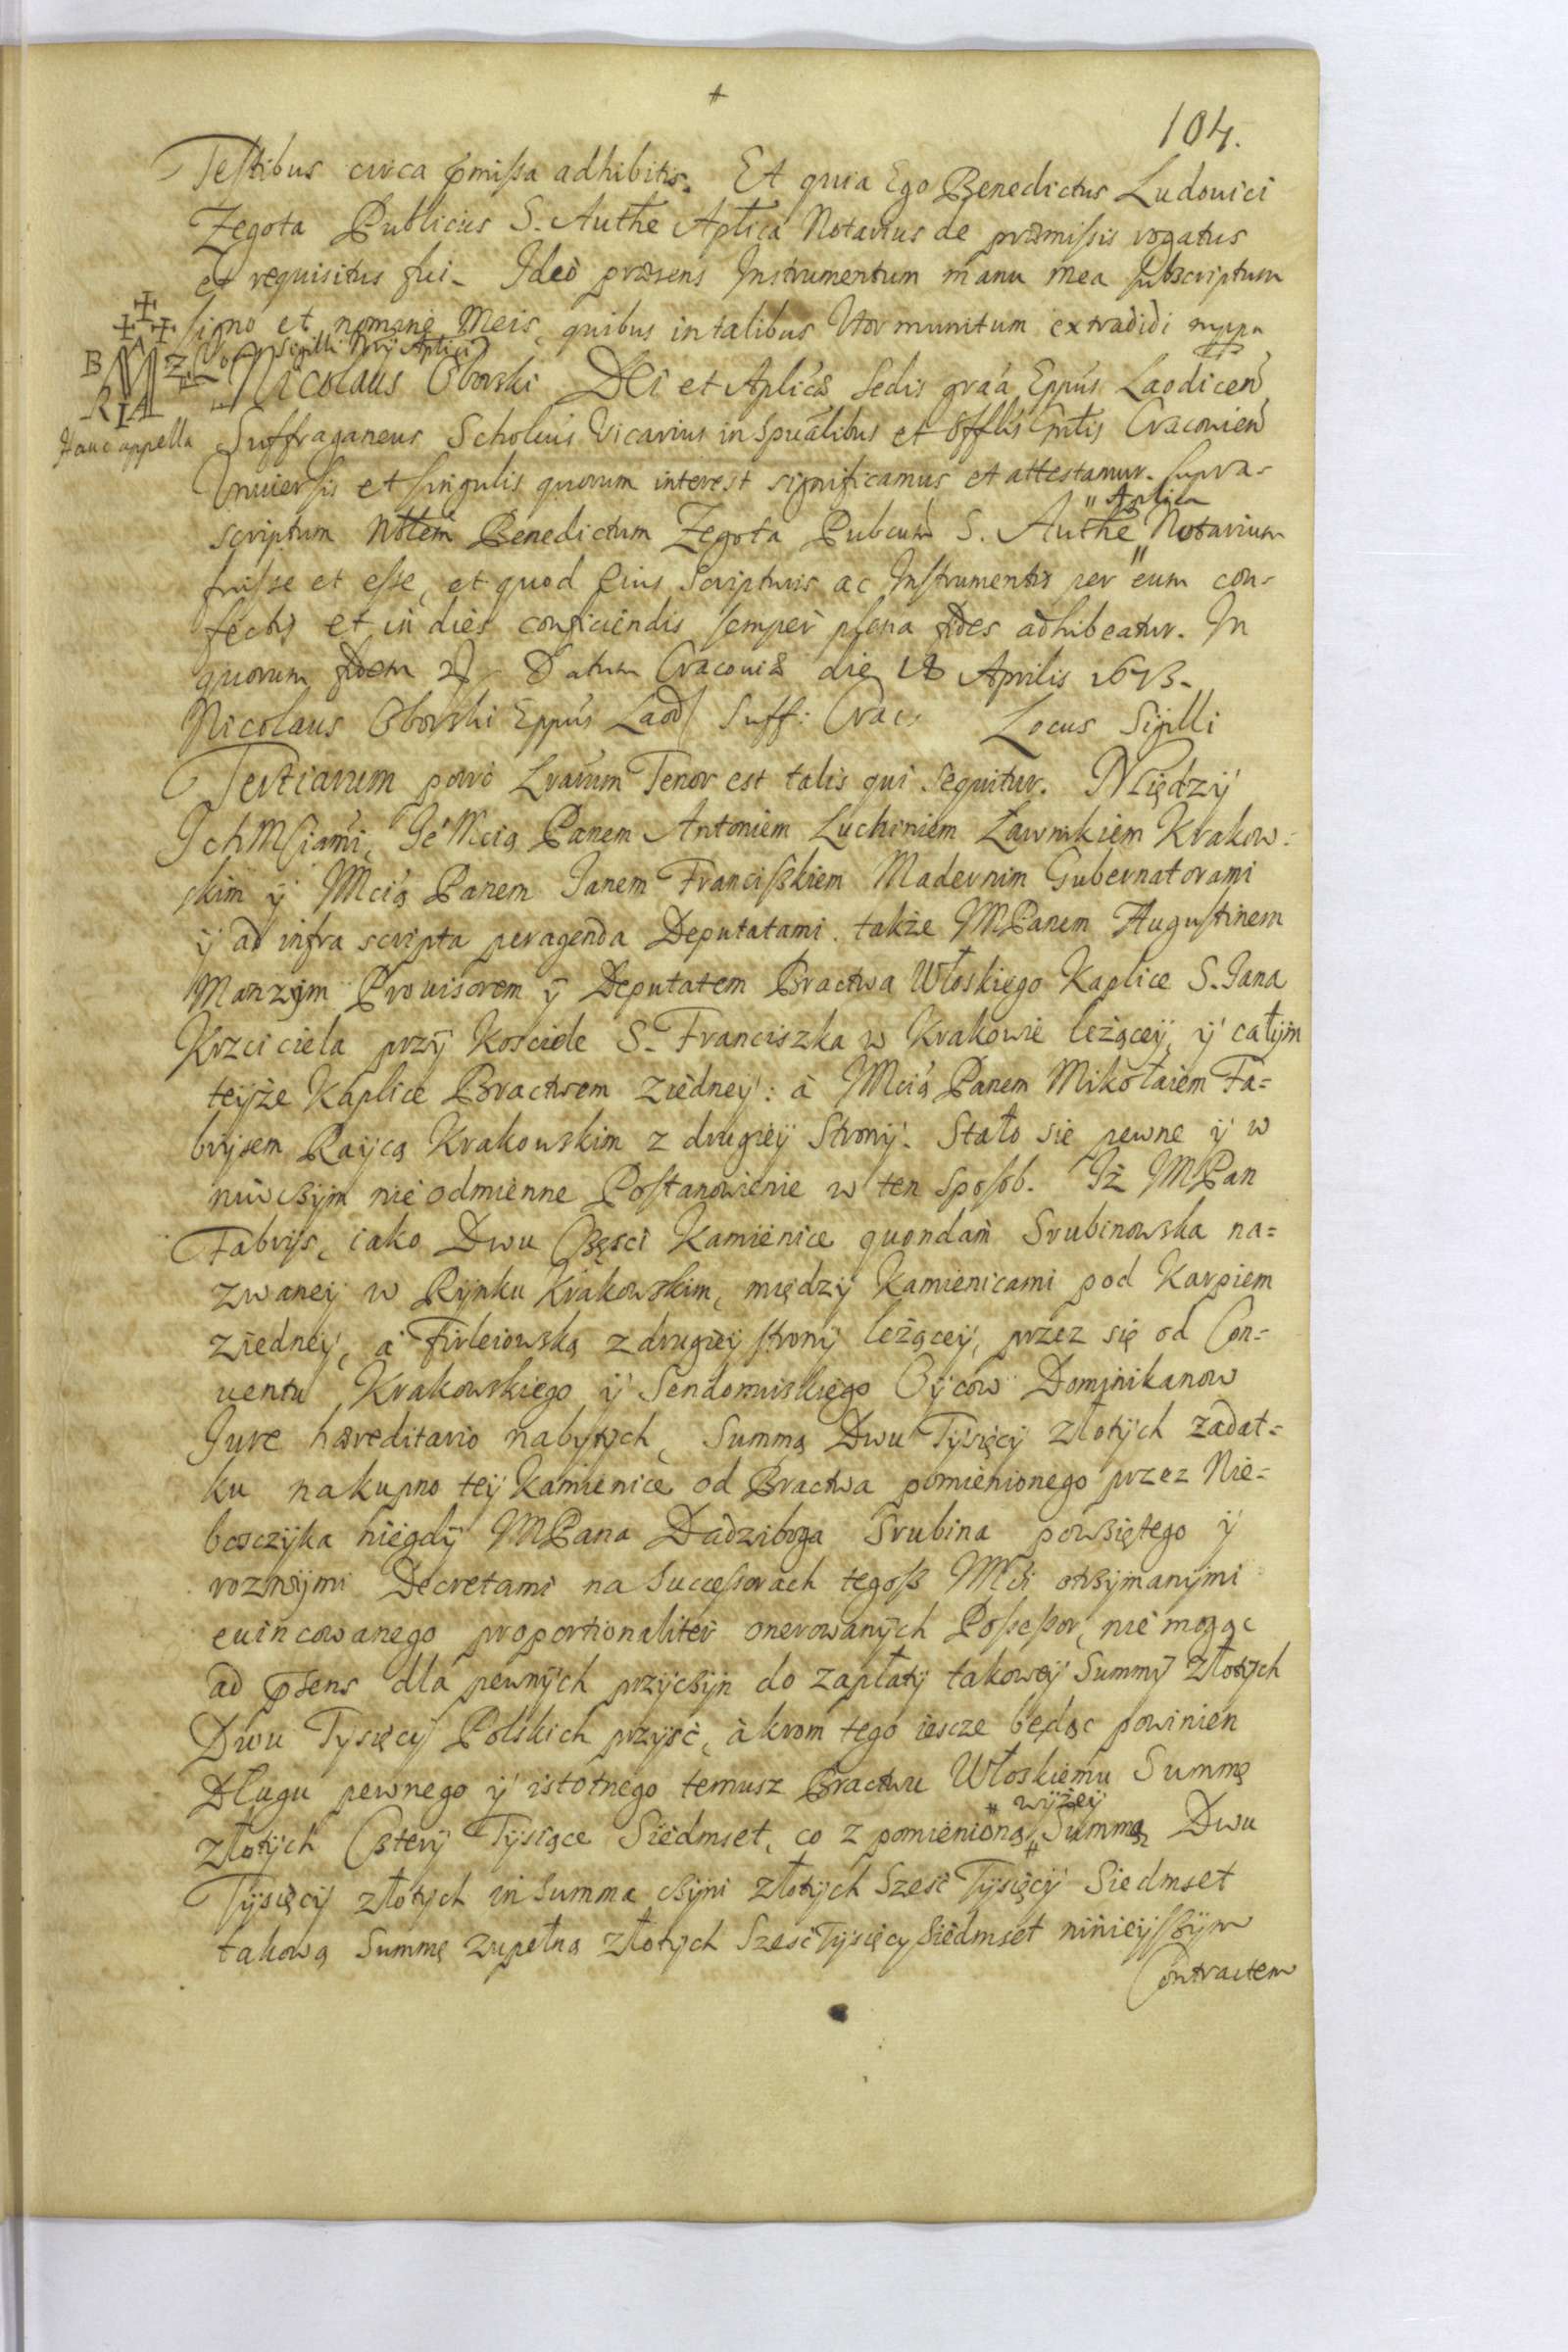 104.
Testibus circa pmissa adhibitis. Et quia Ego Benedictus Ludouici
Zegota Publicus S. Authe Aptica Notarius de præmissis rogatus
et requisitus fui. Ideò præsens Instrumentum manu mea subscriptum
signo et nomine Meis, quibus in talibus Utor munitum extradidi mppa
Sigilli Nrij Aplici
B Z
RIA
Nicolaus Oborski Dei et Aplicæ Sedis graa Eppus Laodicen,
Hanc appella
Suffraganeus Scholius Vicarius in Spualibus et Offlis Gnlis Cracouien
Vniuersis et singulis quorum interest significamus et attestamur. supra-
scriptum Nobilem Benedictum Zegota Pubcum S. Authe " Aplica " Notarium
fuisse et esse, et quod Eius Scripturis ac Instrumentis per eum con-
fectis et in dies conficiendis semper plena fides adhibeatur. In
quorum fidem Datum Cracouiæ die 18 Aprilis 1673.
Nicolaus Oborski Eppus Laod Suff: Crac. Locus Sigilli
Tertiarum porrò Lrarum Tenor est talis qui sequitur. Między
Ich Mciami, Je Mcią Panem Antoniem Luchiniem Ławnikiem Krakow:
skim ÿ JMcią Panem Janem Franciszkiem Madernim Gubernatorami
ÿ ad infra scripta peragenda Deputatami. także MPanem Augustinem
Manzÿm Prouisorem ÿ Deputatem Bractwa Włoskiego Kaplice S. Jana
Krzciciela przÿ Kosciele S. Franciszka w Krakowie leżąceÿ, ÿ całÿm
teÿże Kaplice Bractwem ziedneÿ: à JMcią Panem Mikołaiem Fa=
brÿsem Raÿcą Krakowskim z drugieÿ Stronÿ. Stało się pewne ÿ w
niwczÿm nieodmienne Postanowienie w ten sposob. Iż JMPan
Fabrÿs, iako Dwu Części Kamienice quondam Srubinowska na=
zwaneÿ w Rÿnku Krakowskim, międzÿ Kamienicami pod Karpiem
ziedneÿ, à Firleiowską z drugieÿ stronÿ leżąceÿ, przez się od Con=
uentu Krakowskiego ÿ Sendomirskiego Oÿców Dominikanow
Jure hæreditario nabytÿch, Summą Dwu Tÿsięcÿ złotÿch zadat=
ku na kupno teÿ Kamienice od Bractwa pomienionego przez Nie=
bosczÿka niegdÿ MPana Dadziboga Srubina powziętego ÿ
roznÿmi Decretami na Successorach tegoß Mci otrzÿmanÿmi
euincowanego proportionaliter onerowanÿch Possessor, nie mogąc
ad præsens dla pewnÿch przÿczÿn do zapłatÿ takoweÿ Summÿ złotÿch
Dwu Tÿsięcÿ Polskich przÿść, à krom tego iescze będąc powinien
Długu pewnego ÿ istotnego temusz Bractwu Włoskiemu Summę
złotÿch Czterÿ Tÿsiące Siedmset, co z pomienioną " wÿżeÿ " Summą Dwu
Tÿsięcÿ złotÿch in Summa czÿni złotÿch Szesć Tÿsięcÿ Siedmset
takową Summę zupełną złotÿch Szesć Tÿsięcÿ Siedmset ninieÿszÿm
Contractem